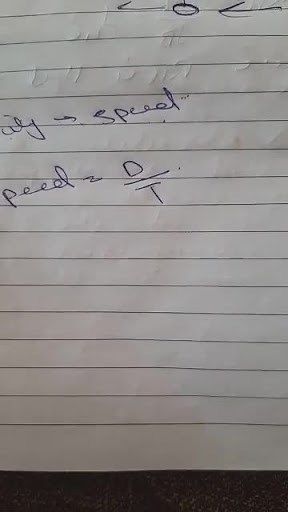 ity → speed
peed = D/T